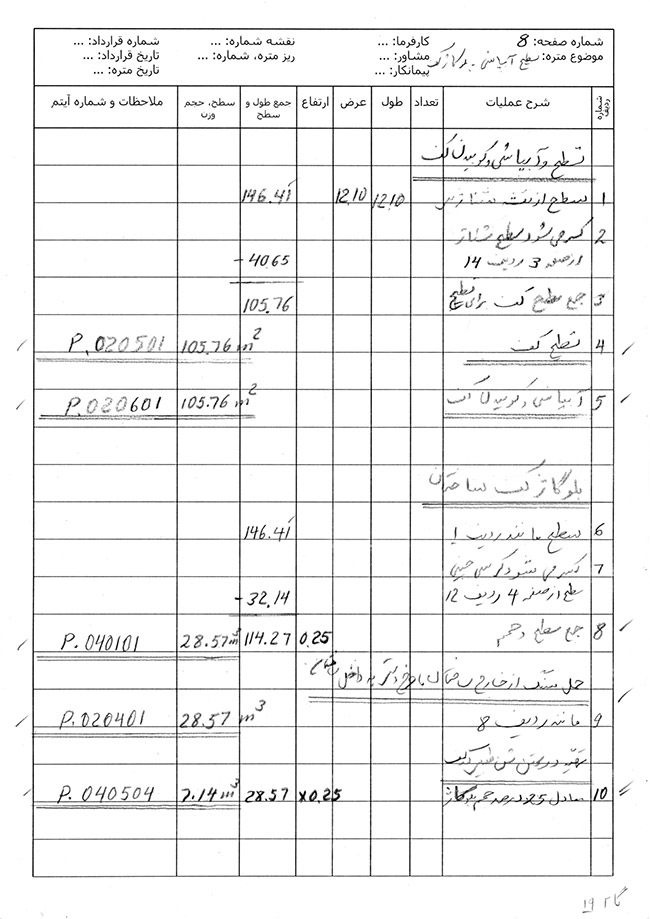 شماره صفحه: 8 کارفرما: ... نقشه شماره: ... شماره قرارداد: ...
موضوع متره: سطح آبپاشی - بلوکاژ کف مشاور: ... ریز متره، شماره: ... تاریخ قرارداد: ...
پیمانکار: ... تاریخ متره: ...
شماره ردیف شرح عملیات تعداد طول عرض ارتفاع جمع طول و سطح سطح، حجم وزن ملاحظات و شماره آیتم
تسطیح و آبپاشی و کوبیدن کف
1 سطح از نقشه 12.10 12.10 146.41
2 کسر می شود سطح
از صفحه 3 ردیف 14 - 40.65
3 جمع سطح کف برای تسطیح 105.76
4 تسطیح کف 105.76 m² P.020501
5 آبپاشی و کوبیدن کف 105.76 m² P.020601
بلوکاژ کف ساختمان
6 سطح مانند ردیف 1 146.41
7 کسر می شود کرسی چینی
سطح از صفحه 4 ردیف 12 - 32.14
8 جمع سطح و حجم 0.25 114.27 28.57 m³ P.040101
حمل سنگ از خارج ساختمان با به داخل
9 مانند ردیف 8 28.57 m³ P.020401
تهیه و ریختن شن کف
10 معادل 25 درصد حجم بلوکاژ x 0.25 28.57 7.14 m³ P.040504